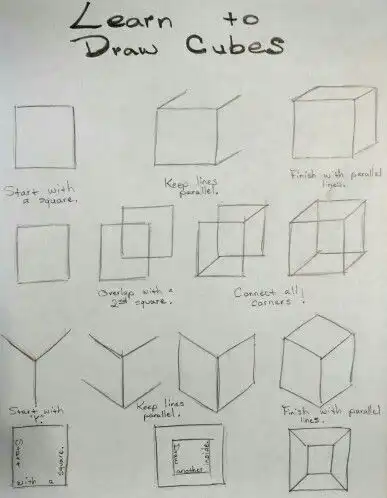 Learn to
Draw Cubes
Start with
a square.
Keep lines
parallel.
Finish with parallel
lines.
Overlap with a
2nd square.
Connect all
corners!
Start with
"Y".
Keep lines
parallel.
Finish with parallel
lines.
Start
with a
square.
Draw
another
inside.